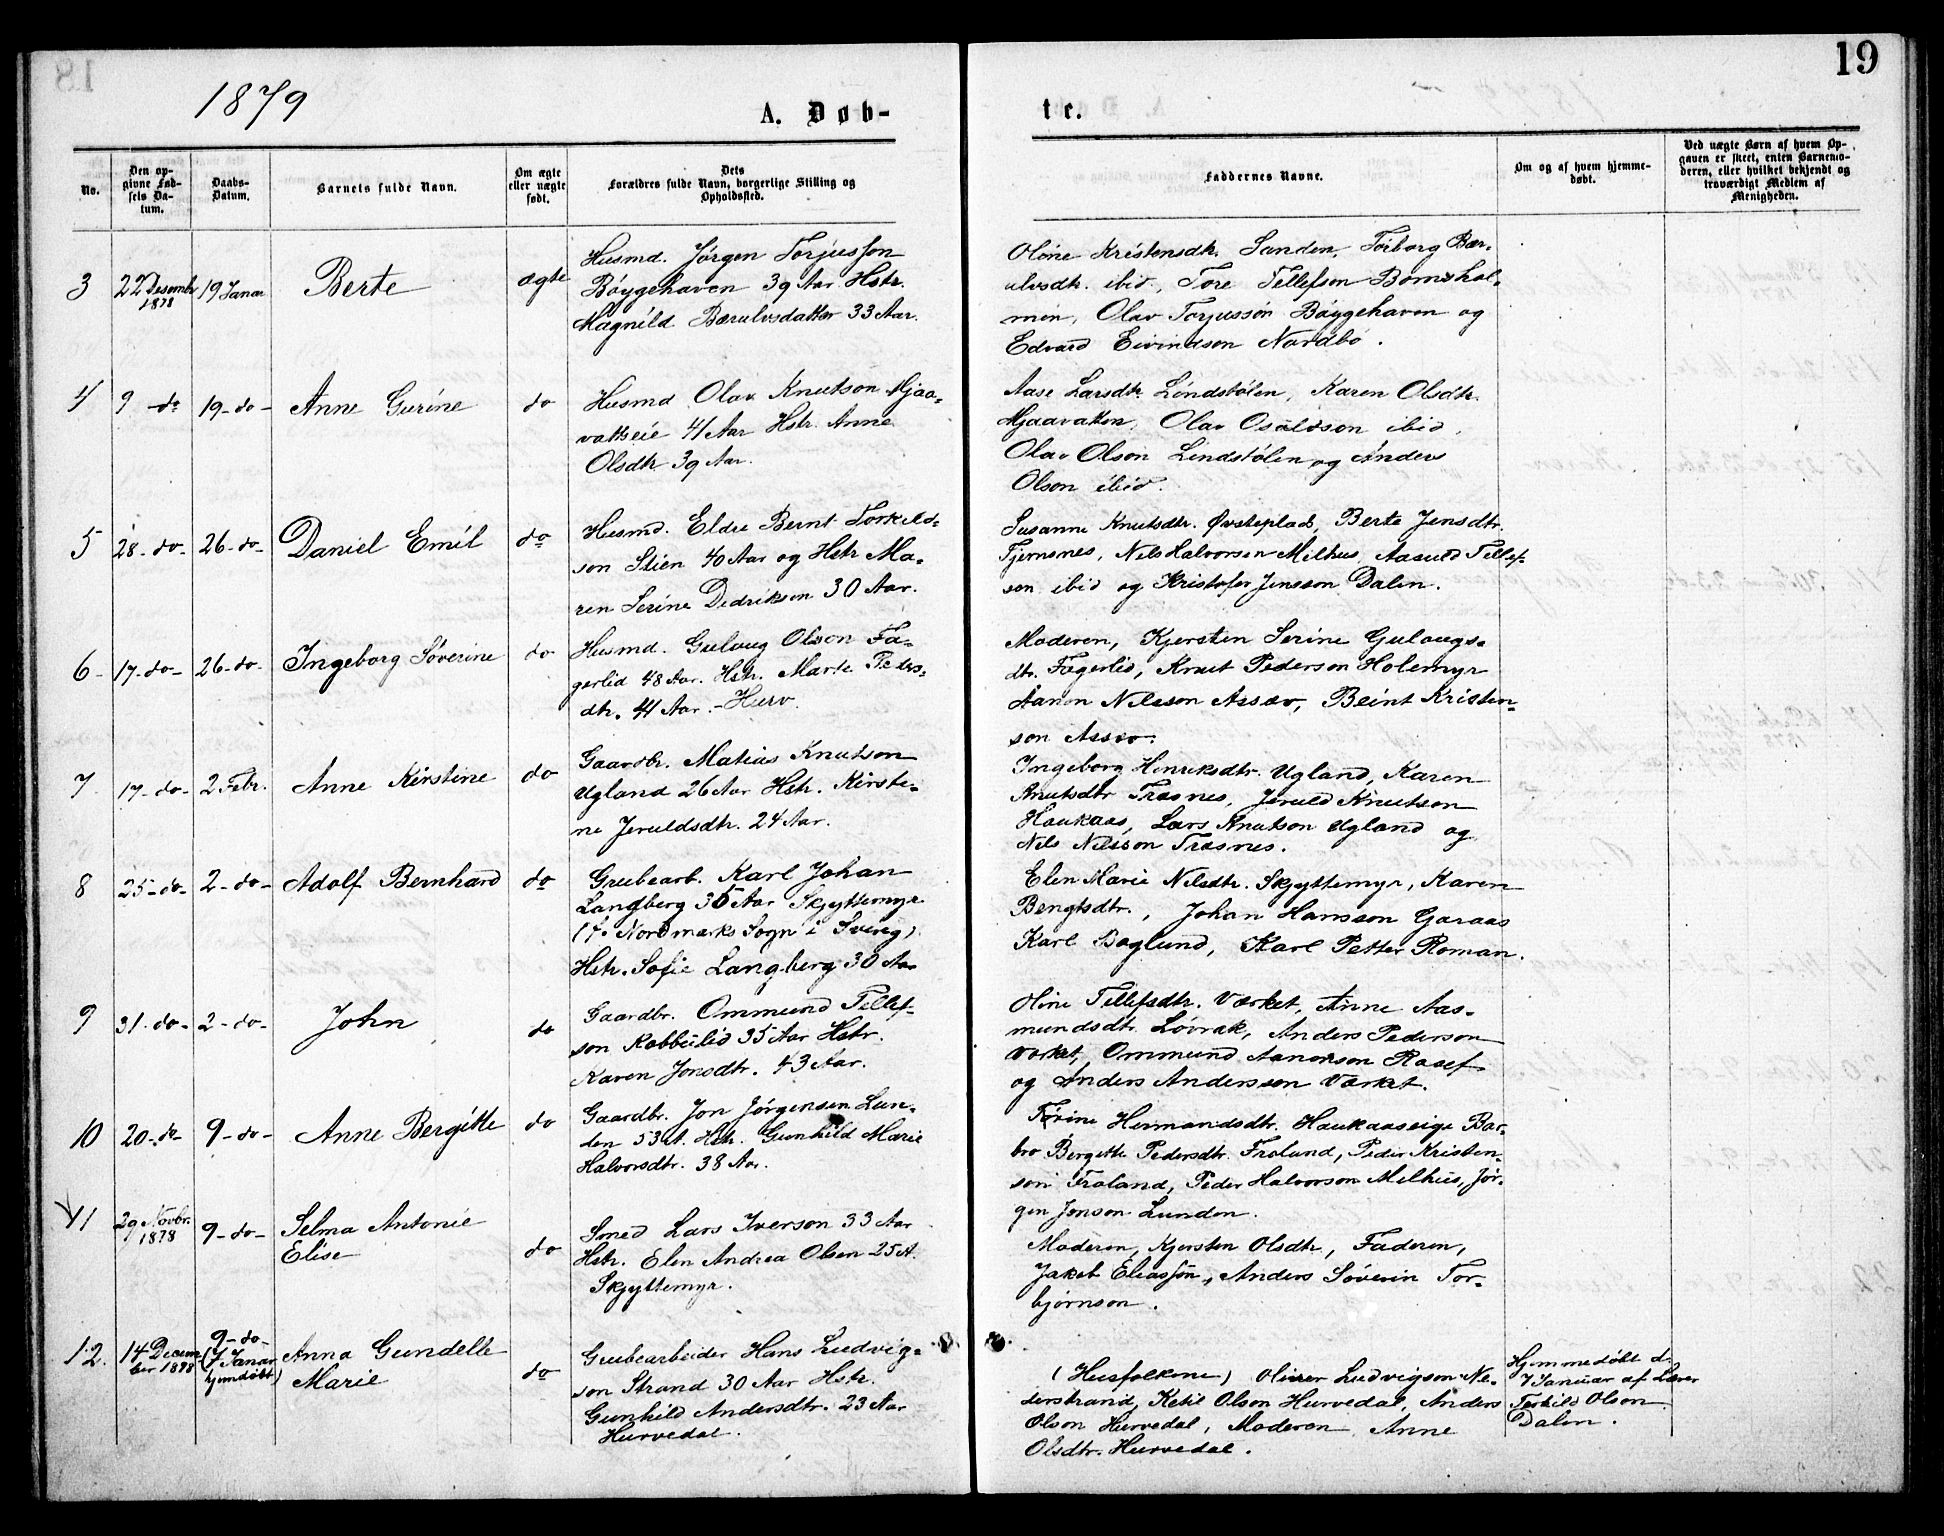 19
1879
A. Døb-
te.
No.
Den op-
givne Fød-
sels Da-
tum.
Daabs-
Datum.
Barnets fulde Navn.
Om ægte
eller uægte
født.
Dets
Forældres fulde Navn, borgerlige Stilling og
Opholdssted.
Faddernes Navne.
Om og af hvem hjemme-
døbt.
Ved uægte Børn af hvem Op-
gaven er skeet, enten Barnemo-
deren, eller hvilket bekjendt og
troværdigt Medlem af
Menigheden.
3
22 Desembr
1878
19 Januar
Berte
ægte
Husmd. Jørgen Torjusson
Bøygehaven 39 Aar Hstr.
Magnild Bærulvsdatter 33 Aar.
Oline Kristensdtr. Sanden, Torborg Bær-
ulvsdtr. ibid, Tore Tellefson Bomshol-
men, Olav Torjusson Bøygehaven og
Edvard Eivindson Nordbø.
4
9 -do
19-do-
Anne Gurine
do
Husmd Olav Knutson Mjaa-
vatseie 41 Aar Hstr. Anne
Olsdtr 39 Aar.
Aase Larsdtr. Lindstølen, Karen Olsdtr.
Mjaavatten, Olav Osuldson ibid,
Olav Olson Lindstølen og Anders
Olson ibid.
5
28-do-
26-do-
Daniel Emil
do
Husmd. Eldre Bernt Torkild-
son Stien 40 Aar og Hstr Ma-
ren Serine Dedriksen 30 Aar.
Susanne Knutsdtr. Østeplads, Berte Jensdtr.
Tjernsnes, Nils Halvorsen Milhus, Aasuld Tellef-
son ibid og Kristofer Jensson Dalen.
6-
17-do-
26-do-
Ingeborg Søverine
do
Husmd. Gulaug Olson Fa-
gerlid 48 Aar. Hstr. Marte Peders-
dtr. 44 Aar. -Hurv.
Moderen, Kjersten Serine Gulaugs-
dtr. Fagerlid, Knut Pederson Holemyr
Aanon Nilsson Assev, Beint Kristen-
son Assev.
7
17-do-
2 Febr.
Anne Kirstine
do
Gaardbr. Matias Knutson
Ugland 26 Aar Hstr. Kirsti-
ne Jeruldsdtr. 24 Aar.
Ingeborg Henriksdtr. Ugland, Karen
Knutsdtr Træsnes, Jeruld Knutson
Haukaas, Lars Knutson Ugland og
Nils Nilsson Træsnes.
8
25-do-
2-do-
Adolf Bernhard
do
Grubearb. Karl Johan
Langberg 35 Aar Skjyttemyr
(f. Nordmarks Sogn i Sverig)
Hstr. Sofie Langberg 30 Aar
Elen Marie Nilsdtr. Skjyttemyr, Karen
Bengtsdtr., Johan Hansson Garaas
Karl Boglund, Karl Petter Roman.
9
31-do-
2-do-
John
do
Gaardbr. Ommund Tellef-
son Robbeslid 35 Aar Hstr.
Karen Jonsdtr. 43 Aar.
Oline Tellefsdtr. Værket, Anne Aas-
mundsdtr. Løvrak, Anders Pederson
Værket, Ommund Aanonson
og Anders Anderssen Værket.
10
20-do-
9-do-
Anne Bergitte
do
Gaardbr. Jon Jørgensen Lun-
den 53 A. Hstr. Gunhild Marie
Halvorsdtr. 38 Aar.
Torine Hermandsdtr. Haukaaseige Bar-
bro Bergitte Pedersdtr. Froland, Peder Kristen-
son Froland, Peder Halvorson Melhus, Jør-
gen Jonson Lunden.
11
29 Novbr.
1878
9-do-
Selma Antonie
Elise
do
Smed Lars Iverson 33 Aar
Hstr. Elen Andrea Olsen 25 A.
Skjyttemyr.
Moderen, Kjersten Olsdtr, Faderen,
Jakob Eliasson, Anders Søverin Tor-
bjørnson.
12.
14 Decem-
ber 1878
9-do-
(7 Januar
hjemdøbt)
Anna Gundelle
Marie
do
Grubearbeider Hans Ludvig-
son Strand 30 Aar Hstr.
Gunhild Andersdtr. 23 Aar
Hurvedal.
(Husfolkene) Oliver Ludvigson Ne-
derstrand, Ketil Olson Hurvedal, Anders
Olson Hurvedal, Moderen, Anne
Olsdtr. Hurvedal.
Hjemmedøbt d.
7 Januar af Lærer
Terkild Olson
Dalen.